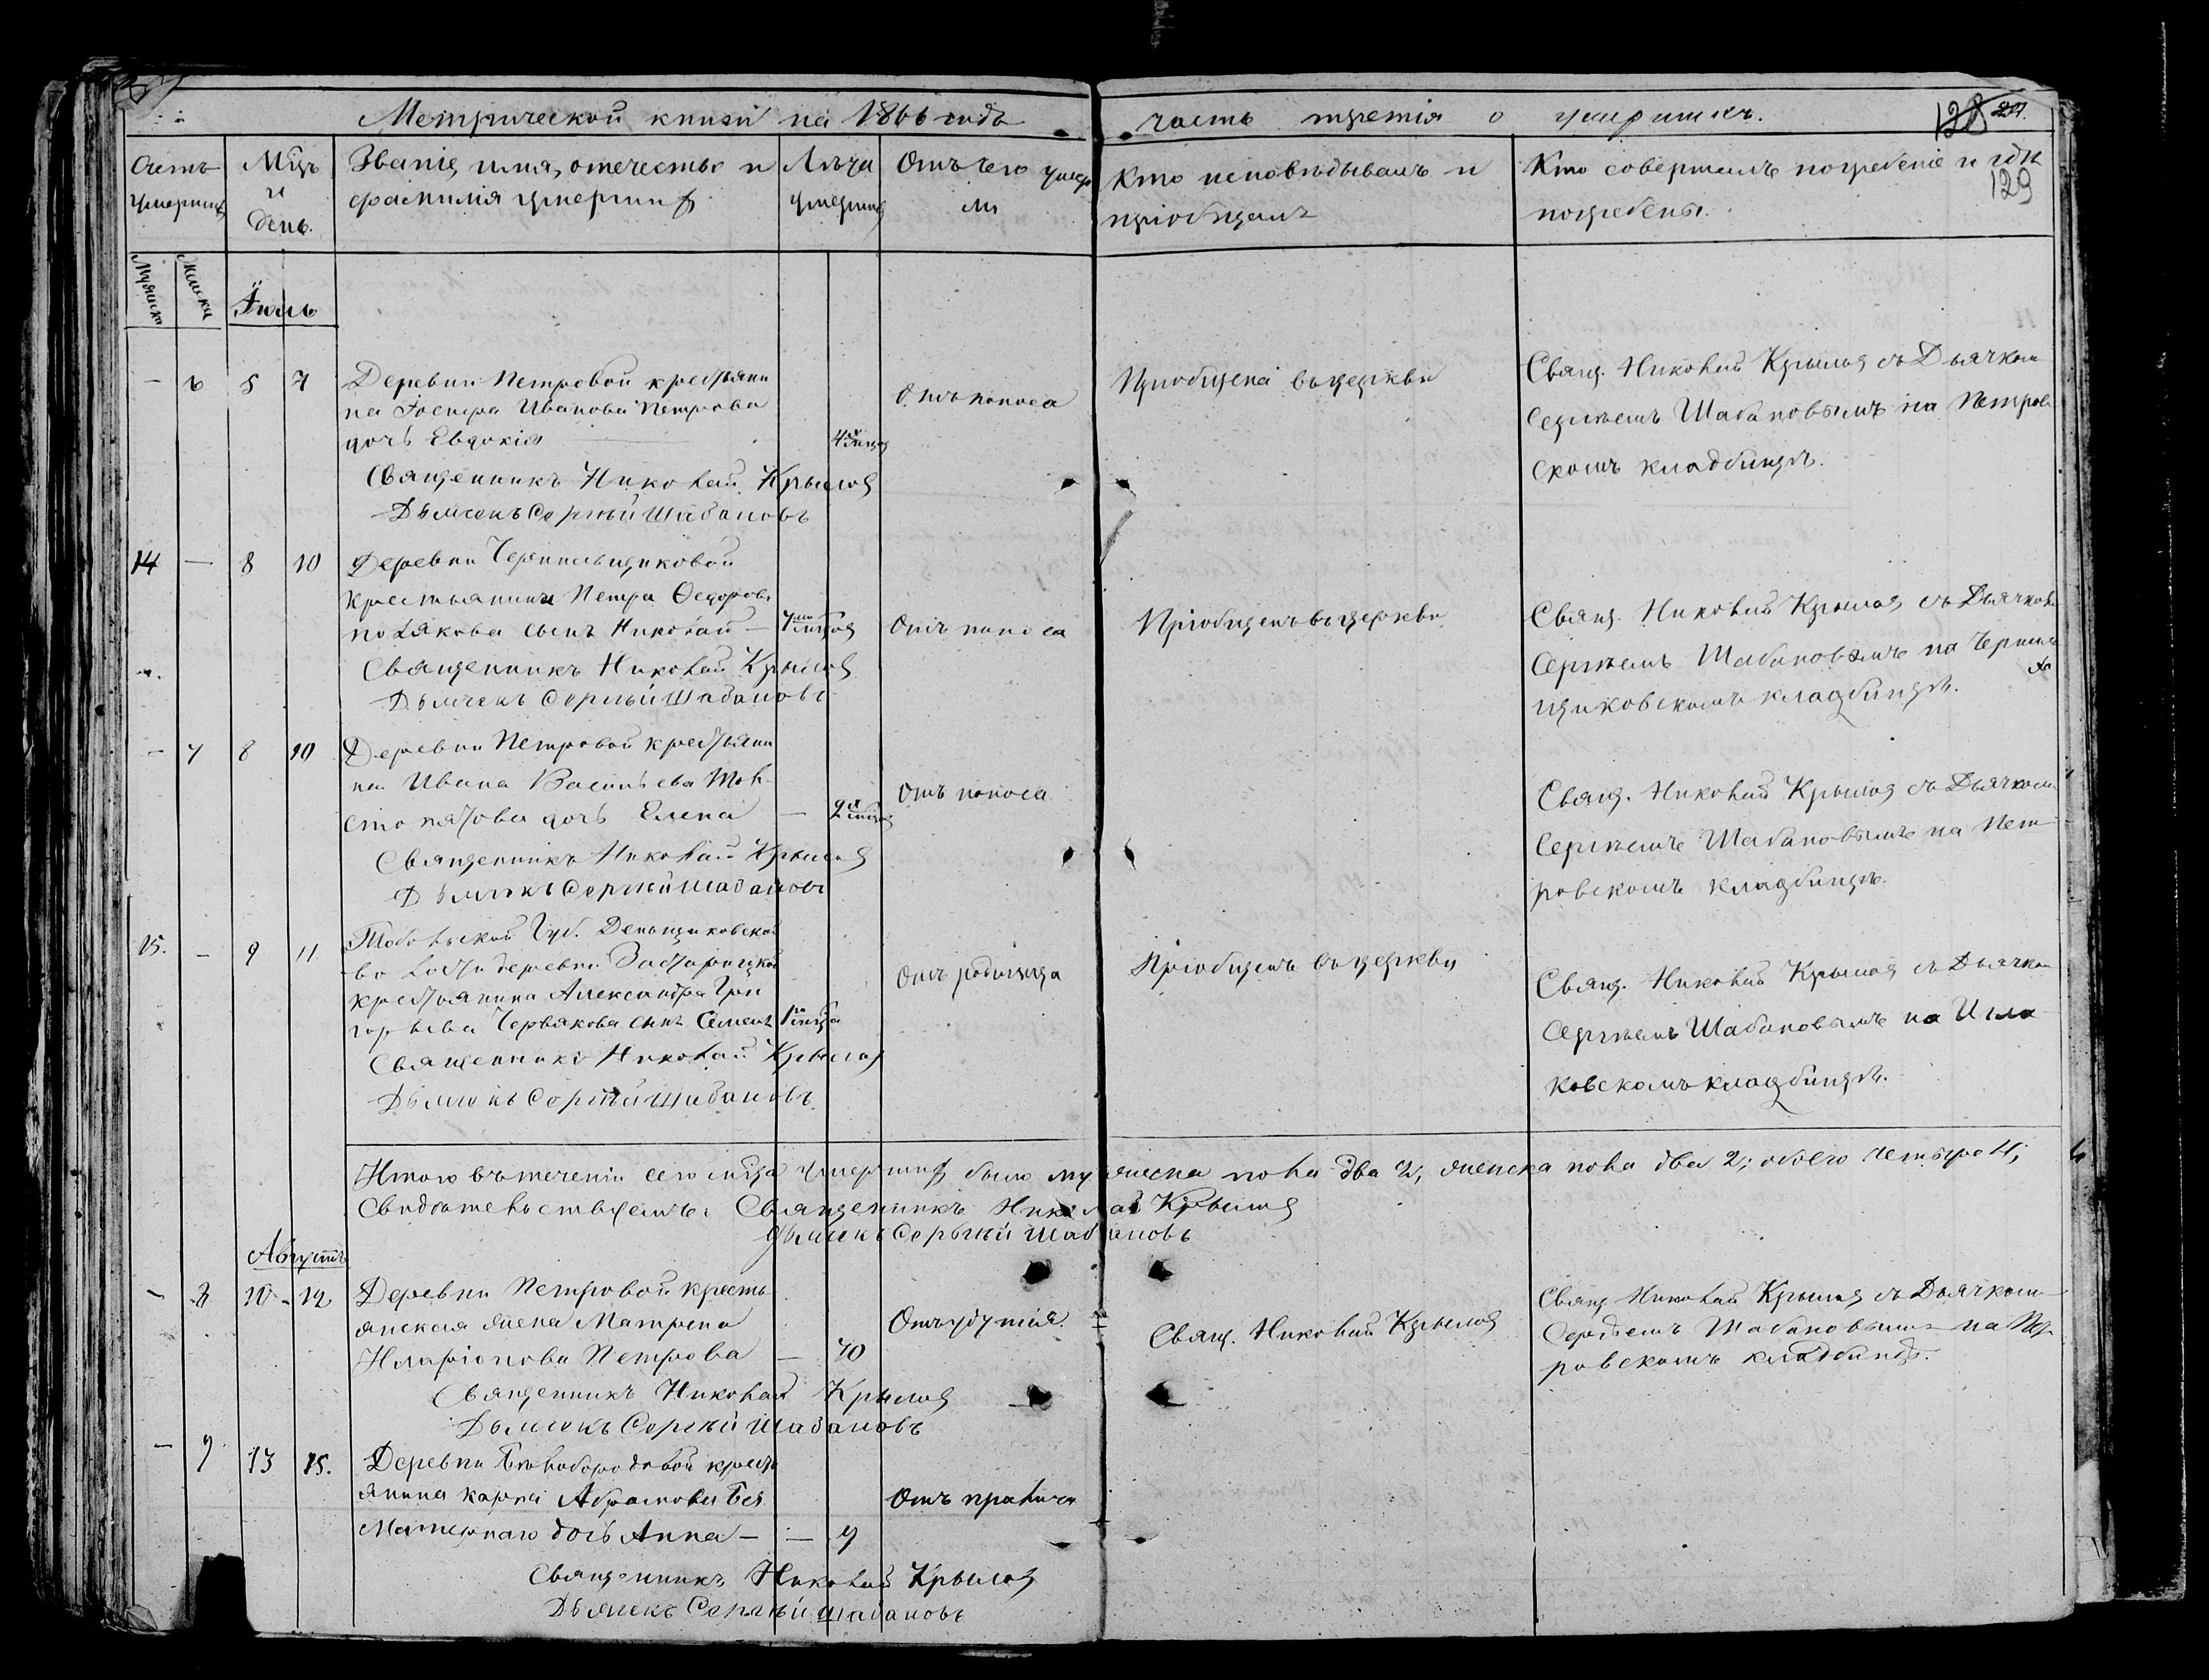 Метрической книги на 1866 годъ часть третія о умершихъ.
128
129
Счетъ умершихъ
Мцъ и день.
Званіе, имя, отечество и фамилія умершихъ
Лѣта умершихъ
Отъ чего умерли
Кто исповѣдывалъ и пріобщалъ
Кто совершалъ погребеніе и гдѣ погребены.
Мужска
Женска
Іюль
— 6 5 7
Деревни Петровой крестьяни
на Іосифа Иванова Петрова
дочь Евдокія
4 мцов
Отъ поноса
Пріобщена въ церкви
Свящ. Николай Крыловъ съ Дьячкомъ
Сергіемъ Шабановымъ на Петров
скомъ кладбищѣ.
Священникъ Николай Крыловъ
Дьячекъ Сергѣй Шабановъ
14 — 8 10
Деревни Чернильщиковой
крестьянина Петра Ѳедорова
Полякова сынъ Николай —
7 мцов
Отъ поноса
Пріобщенъ въ церкви
Свящ. Николай Крыловъ съ Дьячкомъ
Сергіемъ Шабановымъ на Черниль
щиковскомъ кладбищѣ.
Священникъ Николай Крыловъ
Дьячекъ Сергѣй Шабановъ
— 7 8 10
Деревни Петровой крестьяни
на Ивана Васильева Тол
стопятова дочь Елена —
2 мцов
Отъ поноса
Свящ. Николай Крыловъ съ Дьячкомъ
Сергіемъ Шабановымъ на Пет
ровскомъ кладбищѣ.
Священникъ Николай Крыловъ
Дьячекъ Сергѣй Шабановъ
15. — 9 11
Тобольской Губ. Деньщиковской
волости деревни
крестьянина Александра Гри
горьева Червякова сынъ Семенъ
1 мца
Отъ родимца
Пріобщенъ въ церкви
Свящ. Николай Крыловъ съ Дьячком
Сергіемъ Шабановымъ на
ковскомъ кладбищѣ.
Священникъ Николай Крыловъ
Дьячекъ Сергѣй Шабановъ
Итого въ теченіи сего мѣсяца умершихъ было мужеска пола два 2, женска пола два 2; обоего четыре 4;
Свидѣтельствуемъ: Священникъ Николай Крыловъ
Дьячекъ Сергѣй Шабановъ
Августъ
— 8 10 12
Деревни Петровой кресть
янская жена Матрена
Иларіонова Петрова —
70
Отъ удушія
Свящ. Николай Крыловъ
Свящ Николай Крыловъ съ Дьячкомъ
Сергѣемъ Шабановымъ на Пет
ровскомъ кладбищѣ.
Священникъ Николай Крыловъ
Дьячекъ Сергѣй Шабановъ
— 9 13 15.
Деревни Бѣлобородовой кресть
янина Карпа Абрамова Без
Матернаго дочь Анна —
— 9
Отъ
Священникъ Николай Крыловъ
Дьячекъ Сергѣй Шабановъ